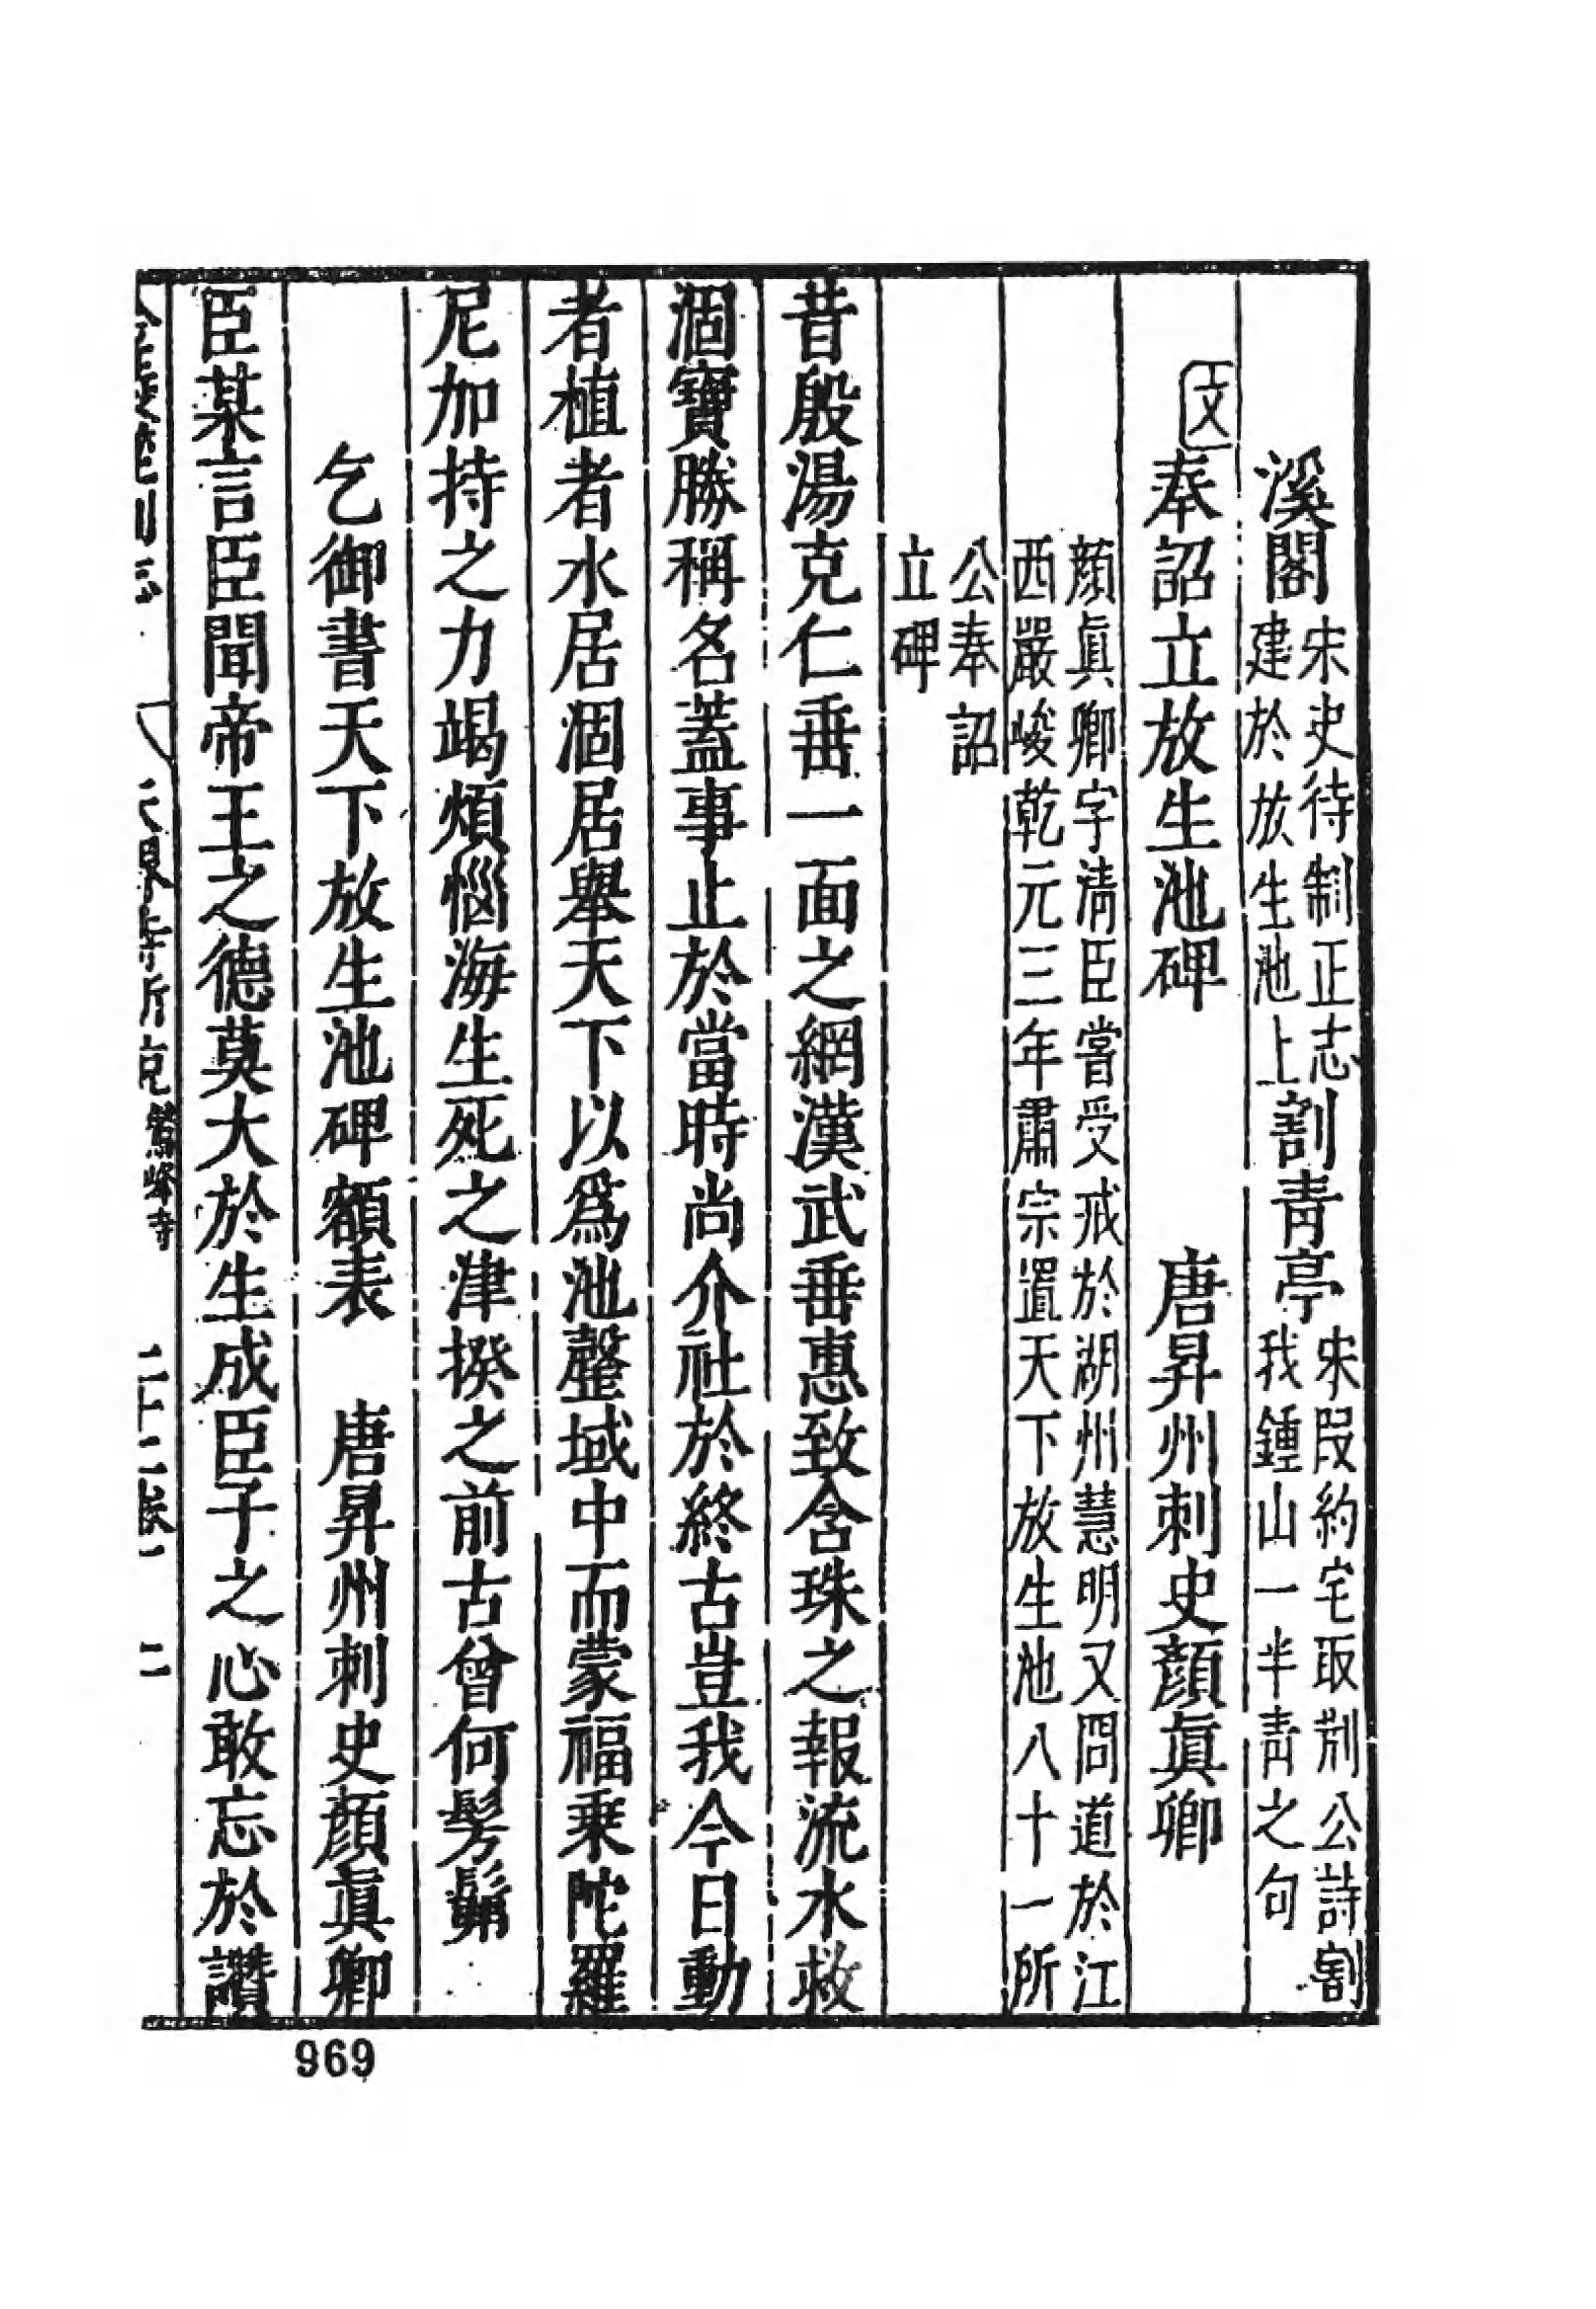 溪閣宋史待制正志建於放生池上割青亭宋段約宅取荆公詩割我鍾山一半青之句
文奉詔立放生池碑 唐昇州刺史顏眞卿
顏眞卿字清臣嘗受戒於湖州慧明又問道於江
西嚴峻乾元三年肅宗置天下放生池八十一所
公奉詔
立碑
昔殷湯克仁垂一面之網漢武垂惠致含珠之報流水救
涸寶勝稱名蓋事止於當時尚介社於終古豈我今日動
者植者水居涸居舉天下以爲池罄域中而蒙福乗陀羅
尼加持之力竭煩惱海生死之津揆之前古曾何髣髴
乞御書天下放生池碑額表 唐昇州刺史顏眞卿
臣某言臣聞帝王之德莫大於生成臣子之心敢忘於讚
鷲峰寺 二十二卷 二
969